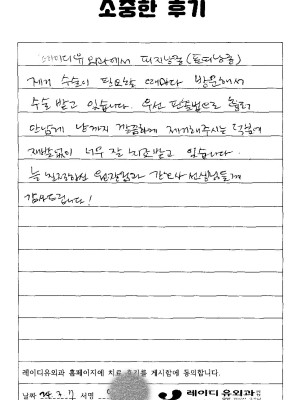 소중한 후기
레이디유외과에서 피지낭종(표피낭종)
제거 수술이 필요할 때마다 방문해서
수술 받고 있습니다. 우선 반흔없으로
안남게 낭까지 깔끔하게 제거해주시는 덕분에
재발없이 너무 잘 치료받고 있습니다.
늘 친절하신 원장님과 간호사 선생님들께
감사드립니다!
레이디유외과 홈페이지에 치료 후기를 게시함에 동의합니다.
날짜 24.3.7 서명
레이디유외과